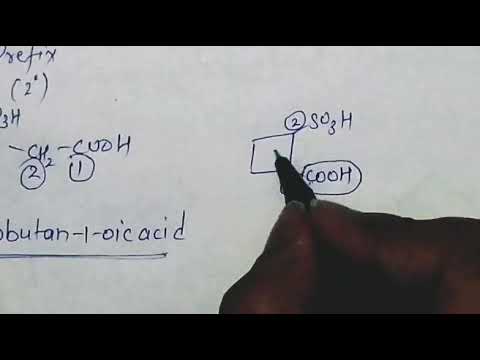 refix
(2°)
3H
-CH2-COOH
2 1
obutan-1-oic acid
2 SO3H
COOH